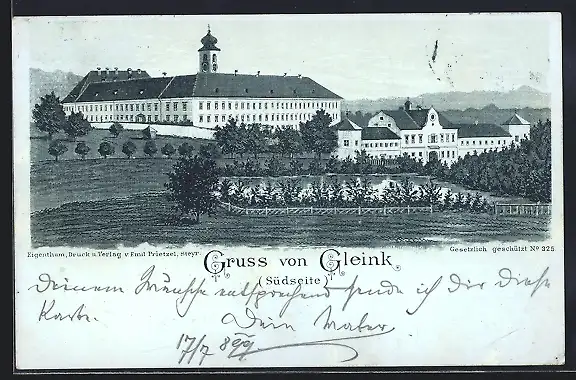 Eigenthum, Druck u. Verlag v. Emil Prietzel, Steyr.
Gesetzlich geschützt Nº 325
Gruss von Gleink
(Südseite)
Deinem Wunsche entsprechend sende ich Dir diese
Karte.
Dein Vater
17/7 899